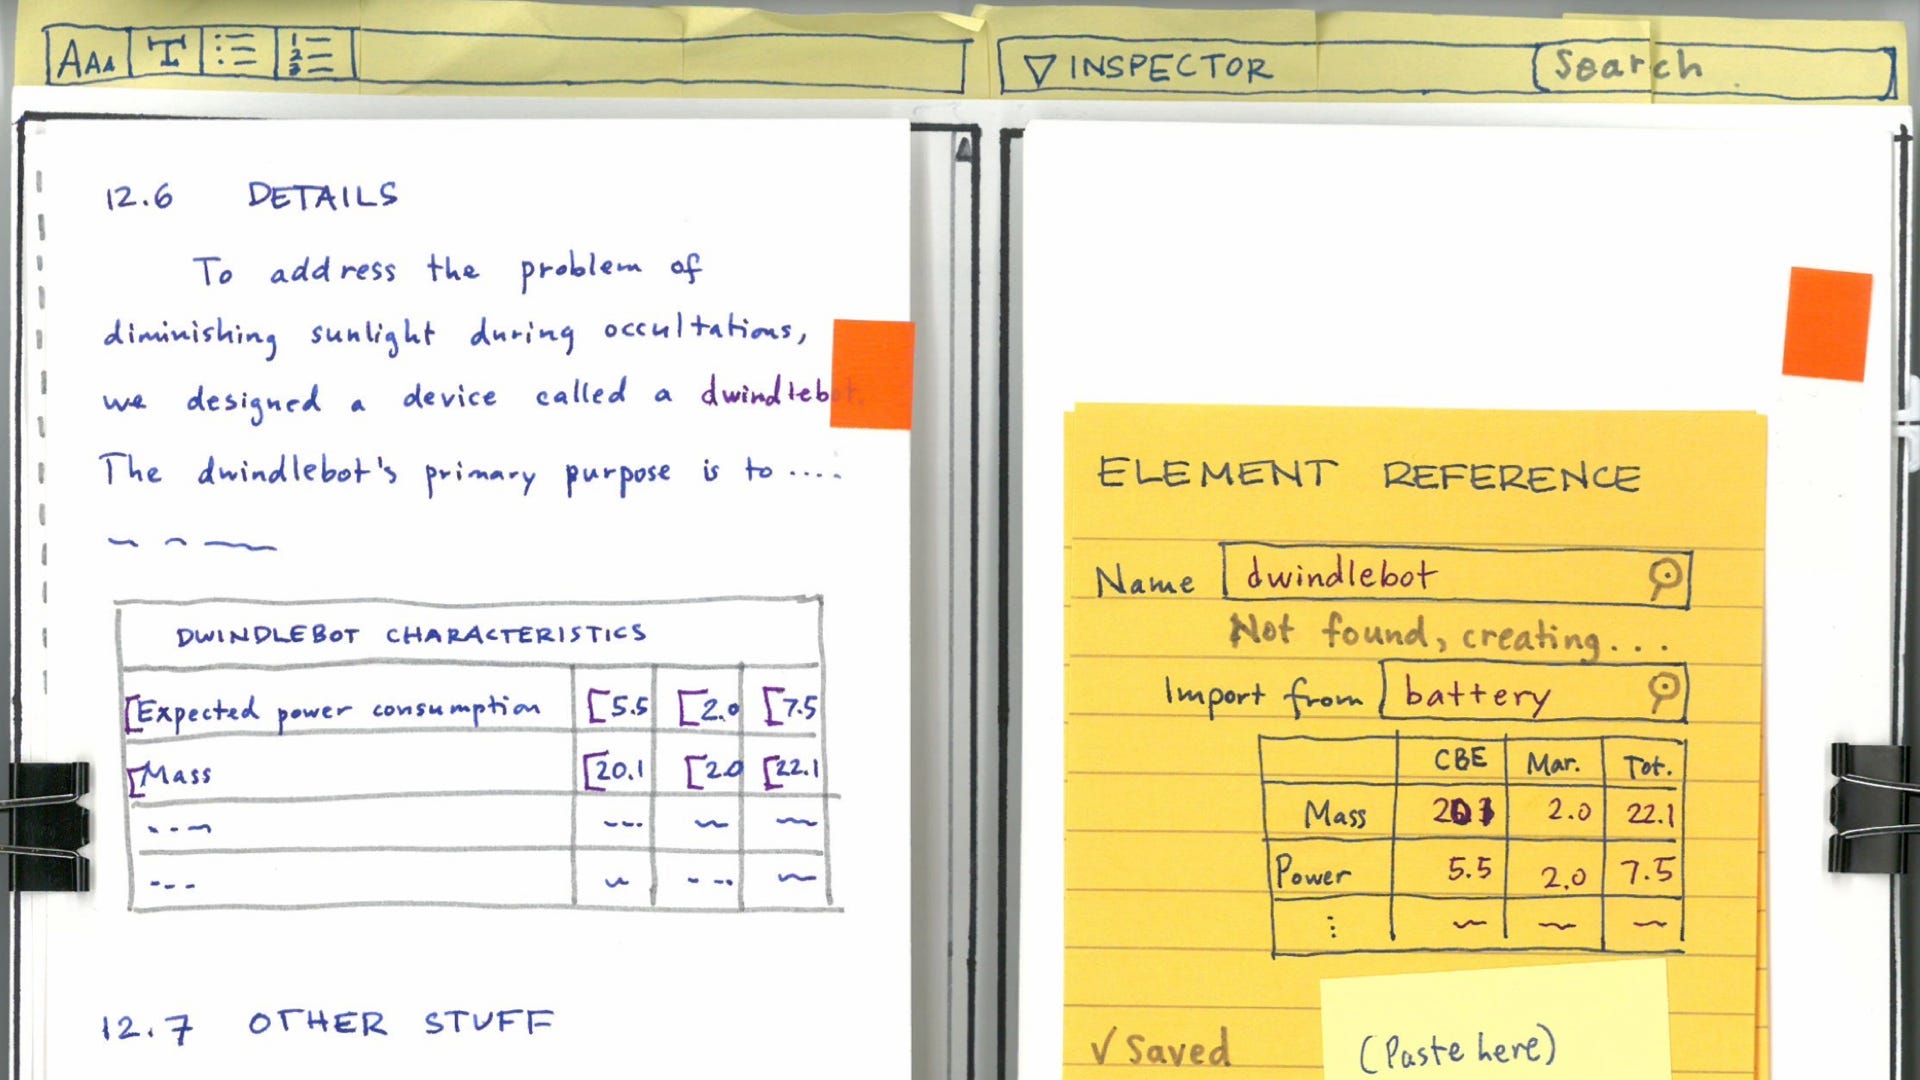 AAA T 1 2 3
▽ INSPECTOR Search
12.6 DETAILS
To address the problem of
diminishing sunlight during occultations,
we designed a device called a dwindlebot.
The dwindlebot's primary purpose is to ....
DWINDLEBOT CHARACTERISTICS
[Expected power consumption [5.5 [2.0 [7.5
[Mass [20.1 [2.0 [22.1
12.7 OTHER STUFF
ELEMENT REFERENCE
Name dwindlebot
Not found, creating...
Import from battery
CBE Mar. Tot.
Mass 20.1 2.0 22.1
Power 5.5 2.0 7.5
✓ Saved
(Paste here)